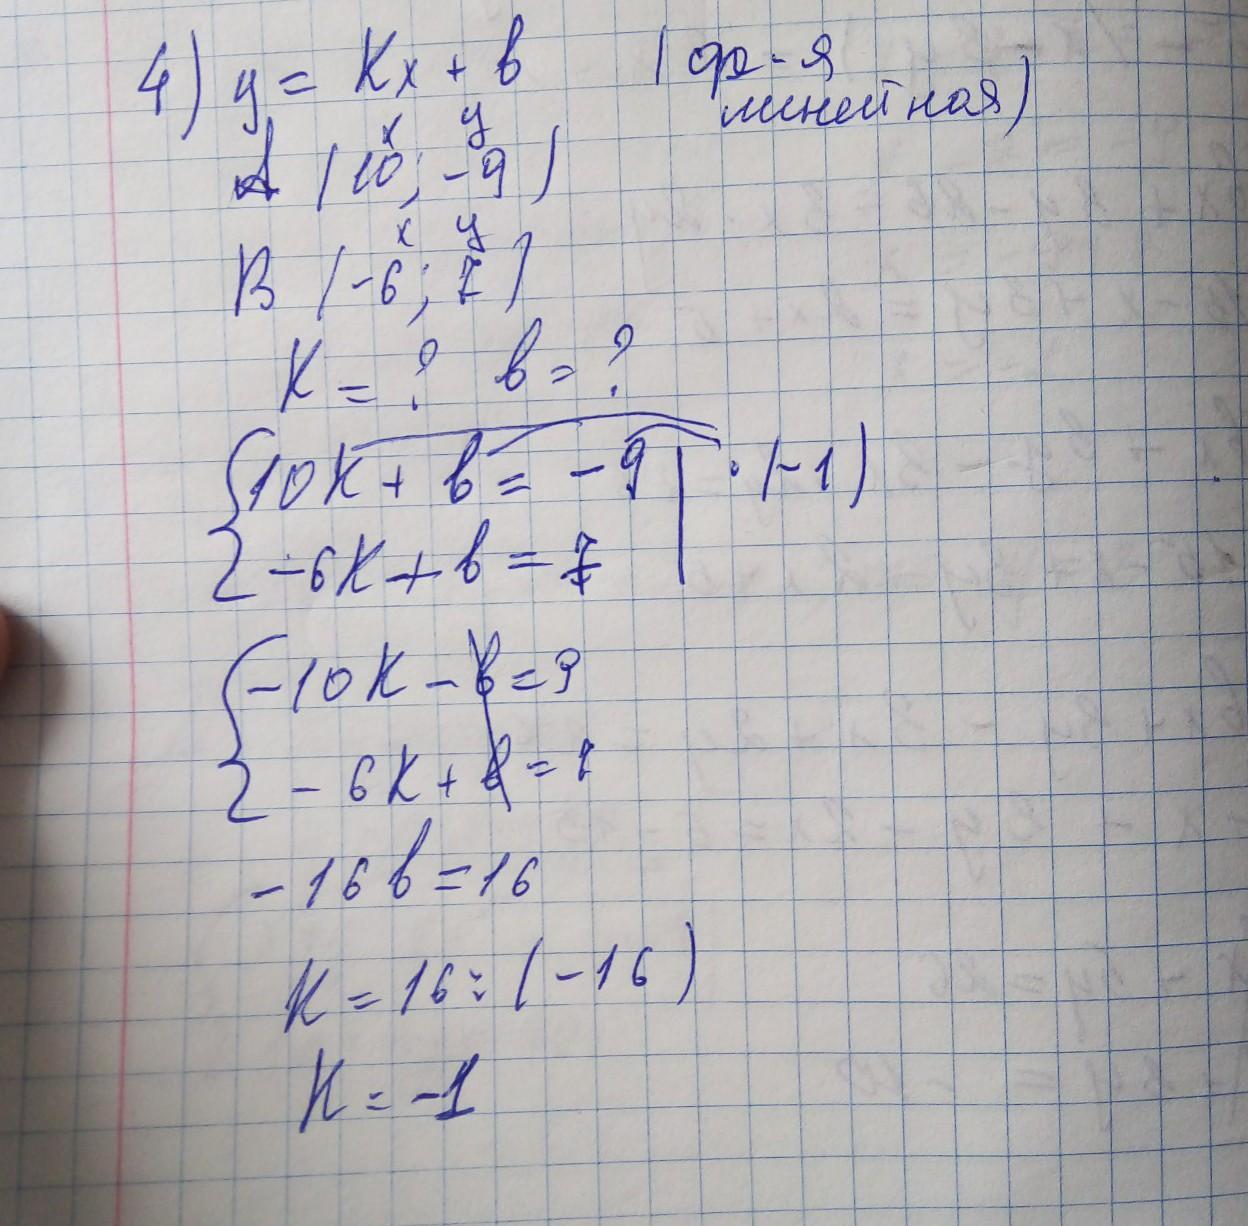 4) y = Kx + b (ф-я
линейная)
x y
A (10; -9)
x y
B (-6; 7)
K = ? b = ?
10K + b = -9 | · (-1)
-6K + b = 7
-10K - b = 9
- 6K + b = 7
- 16 b = 16
K = 16 : (-16)
K = -1